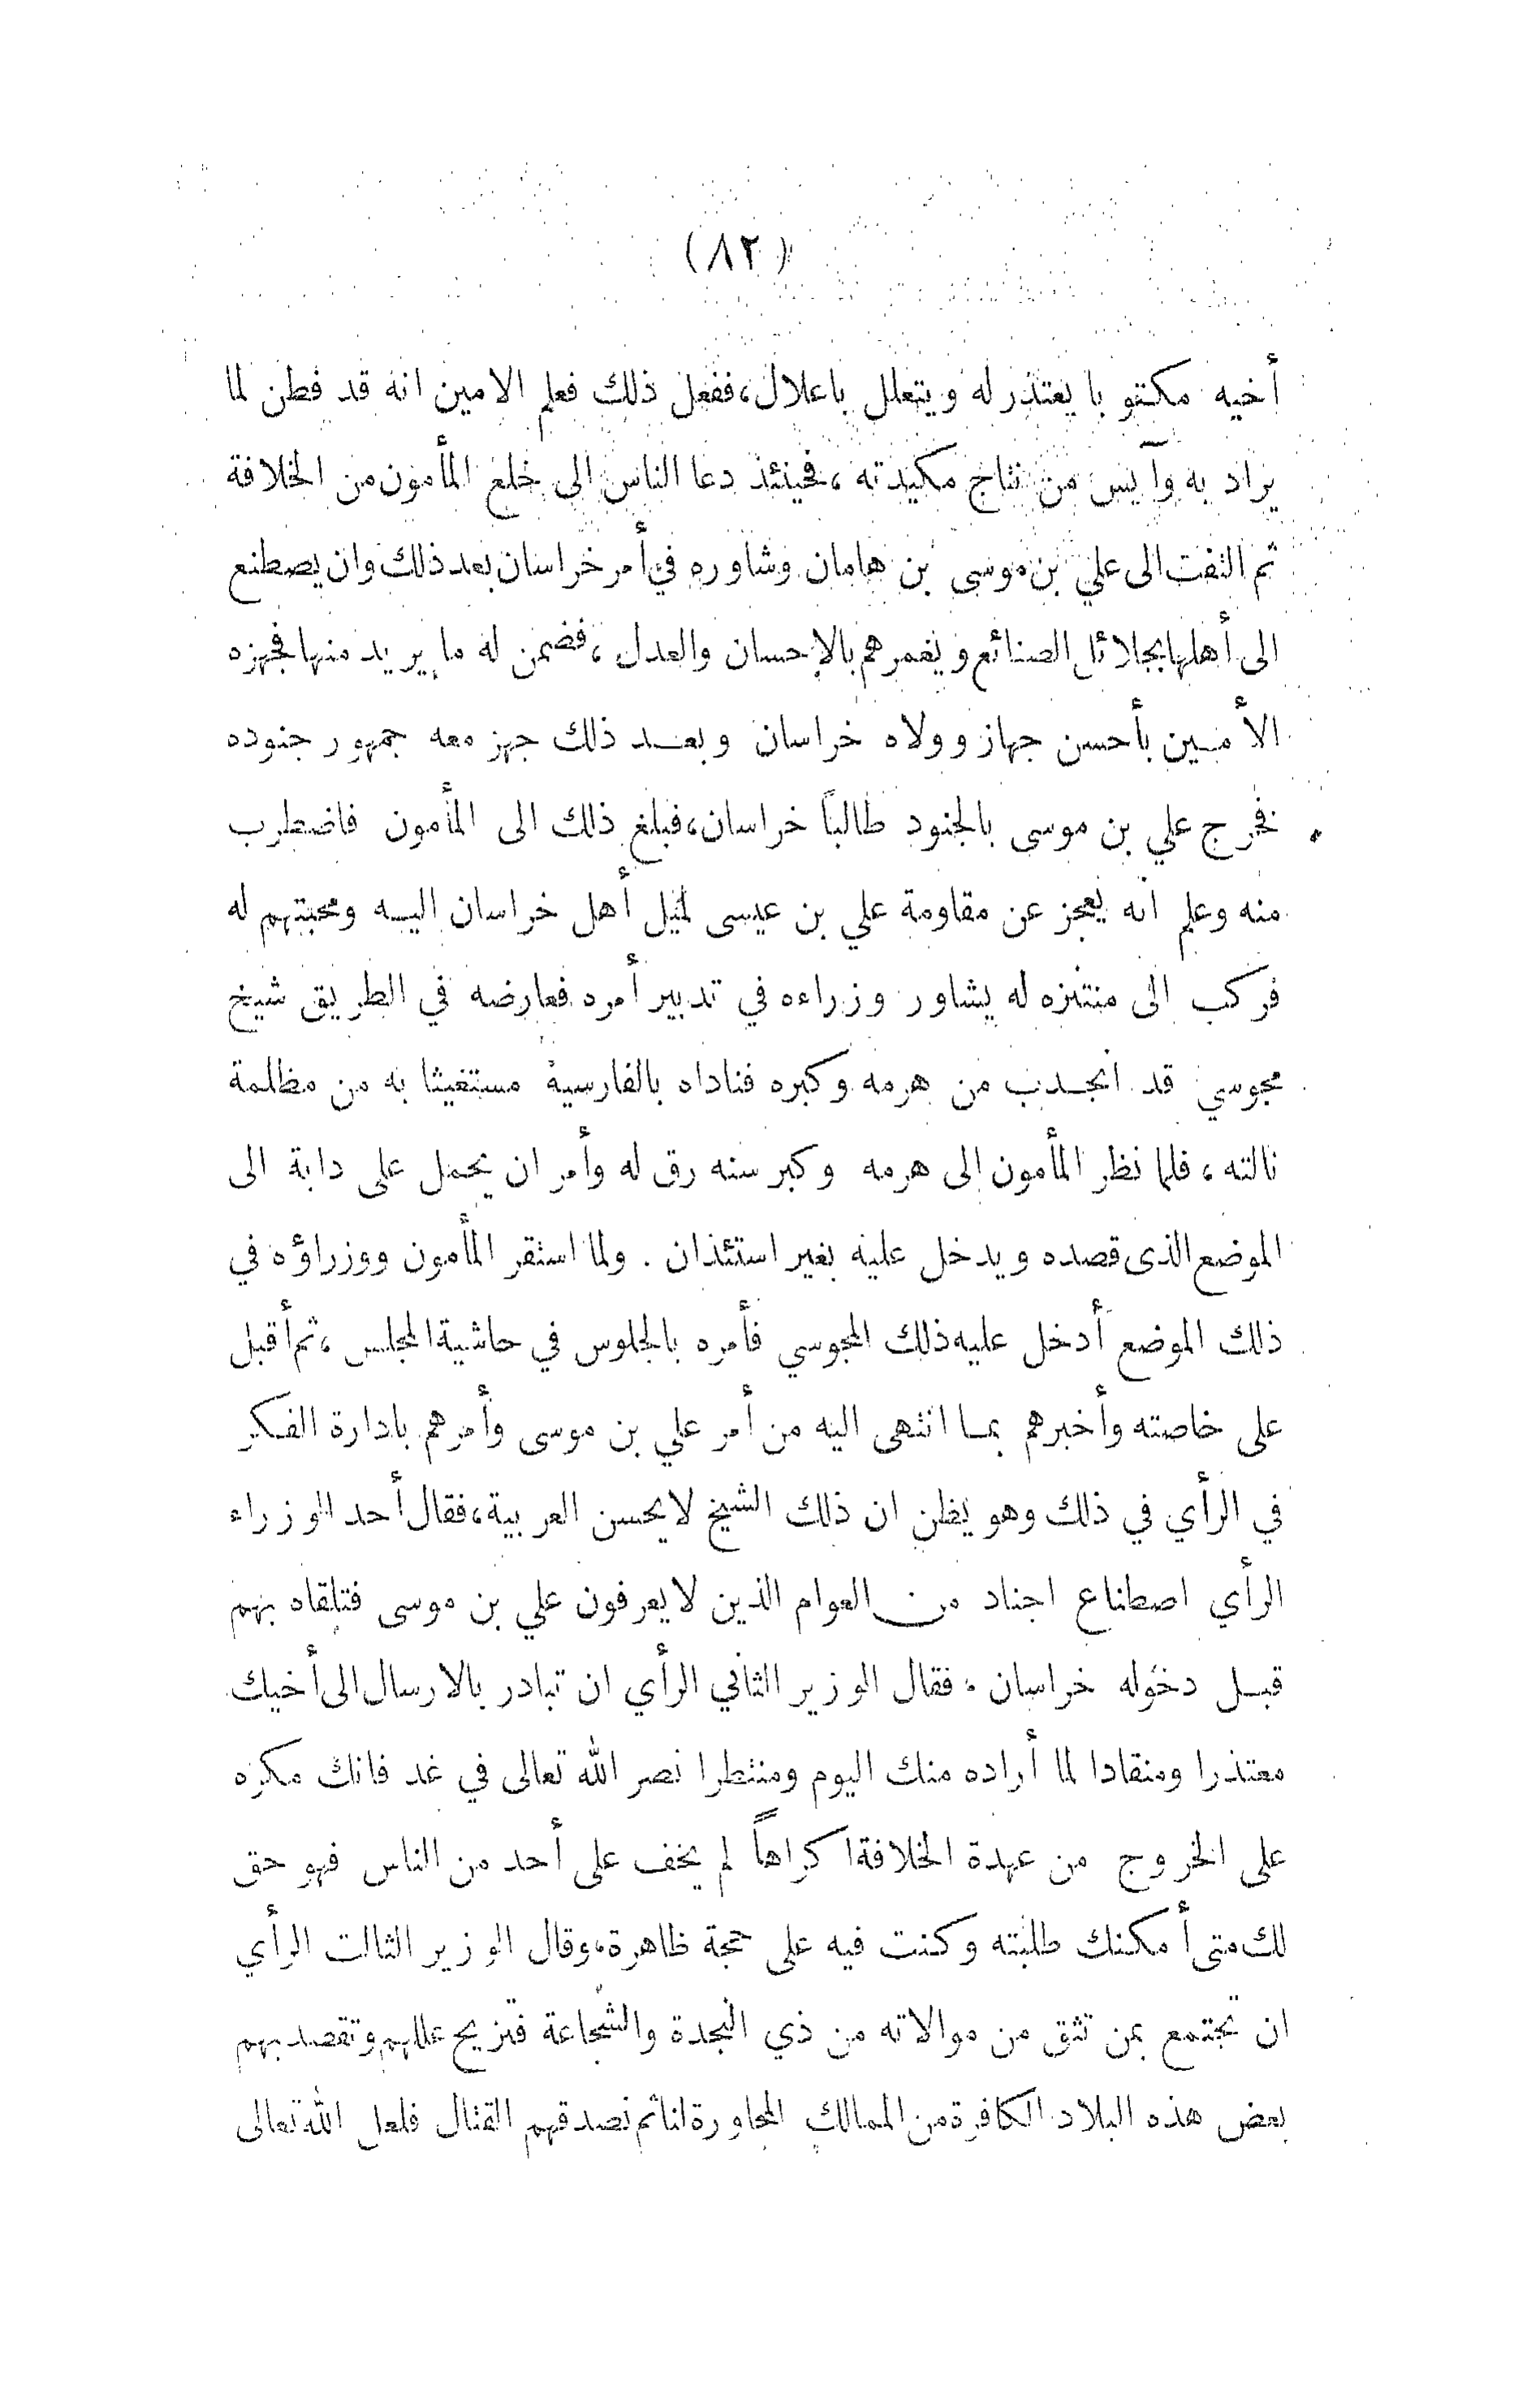 (٨٢)
أخيه مكتوبا يعتذر له ويتعلل باعلال، ففعل ذلك فعلم الامين انه قد فطن لما
يراد به وآيس من نتاج مكيدته ، فحينئذ دعا الناس الى خلع المأمون من الخلافة
ثم التفت الى علي بن موسى بن هامان وشاوره في أمر خراسان بعد ذلك وان يصطنع
الى أهلها بجلائل الصنائع ويغمرهم بالإحسان والعدل ، فضمن له ما يريد منها فجهزه
الأمين بأحسن جهاز وولاه خراسان وبعد ذلك جهز معه جمهور جنوده
فخرج علي بن موسى بالجنود طالباً خراسان، فبلغ ذلك الى المأمون فاضطرب
منه وعلم انه يعجز عن مقاومة علي بن عيسى لميل أهل خراسان اليه ومحبتهم له
فركب الى منتزه له يشاور وزراءه في تدبير أمره فعارضه في الطريق شيخ
مجوسي قد انجدب من هرمه وكبره فناداه بالفارسية مستغيثا به من مظلمة
نالته ، فلما نظر المأمون الى هرمه وكبر سنه رق له وأمر ان يحمل على دابة الى
الموضع الذى قصده ويدخل عليه بغير استئذان . ولما استقر المأمون ووزراؤه في
ذلك الموضع أدخل عليه ذلك المجوسي فأمره بالجلوس في حاشية المجلس ، ثم أقبل
على خاصته وأخبرهم بما انتهى اليه من أمر علي بن موسى وأمرهم بادارة الفكر
في الرأي في ذلك وهو يظن ان ذلك الشيخ لا يحسن العربية، فقال أحد الوزراء
الرأي اصطناع اجناد من العوام الذين لا يعرفون علي بن موسى فتلقاه بهم
قبل دخوله خراسان ، فقال الوزير الثاني الرأي ان تبادر بالارسال الى أخيك
معتذرا ومنقادا لما أراده منك اليوم ومنتظرا نصر الله تعالى في غد فانك مكره
على الخروج من عهدة الخلافة اكراهاً لم يخف على أحد من الناس فهو حق
لك متى أمكنك طلبته وكنت فيه على حجة ظاهرة، وقال الوزير الثالث الرأي
ان تجتمع بمن تثق من موالاته من ذي النجدة والشجاعة فتزيح عللهم وتقصد بهم
بعض هذه البلاد الكافرة من الممالك المجاورة لنا ثم نصدقهم القتال فلعل الله تعالى